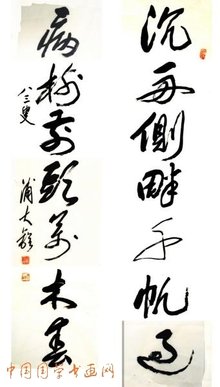 沉舟側畔千帆過
病樹前頭萬木春
八三叟
蒲大
中国国学书画网